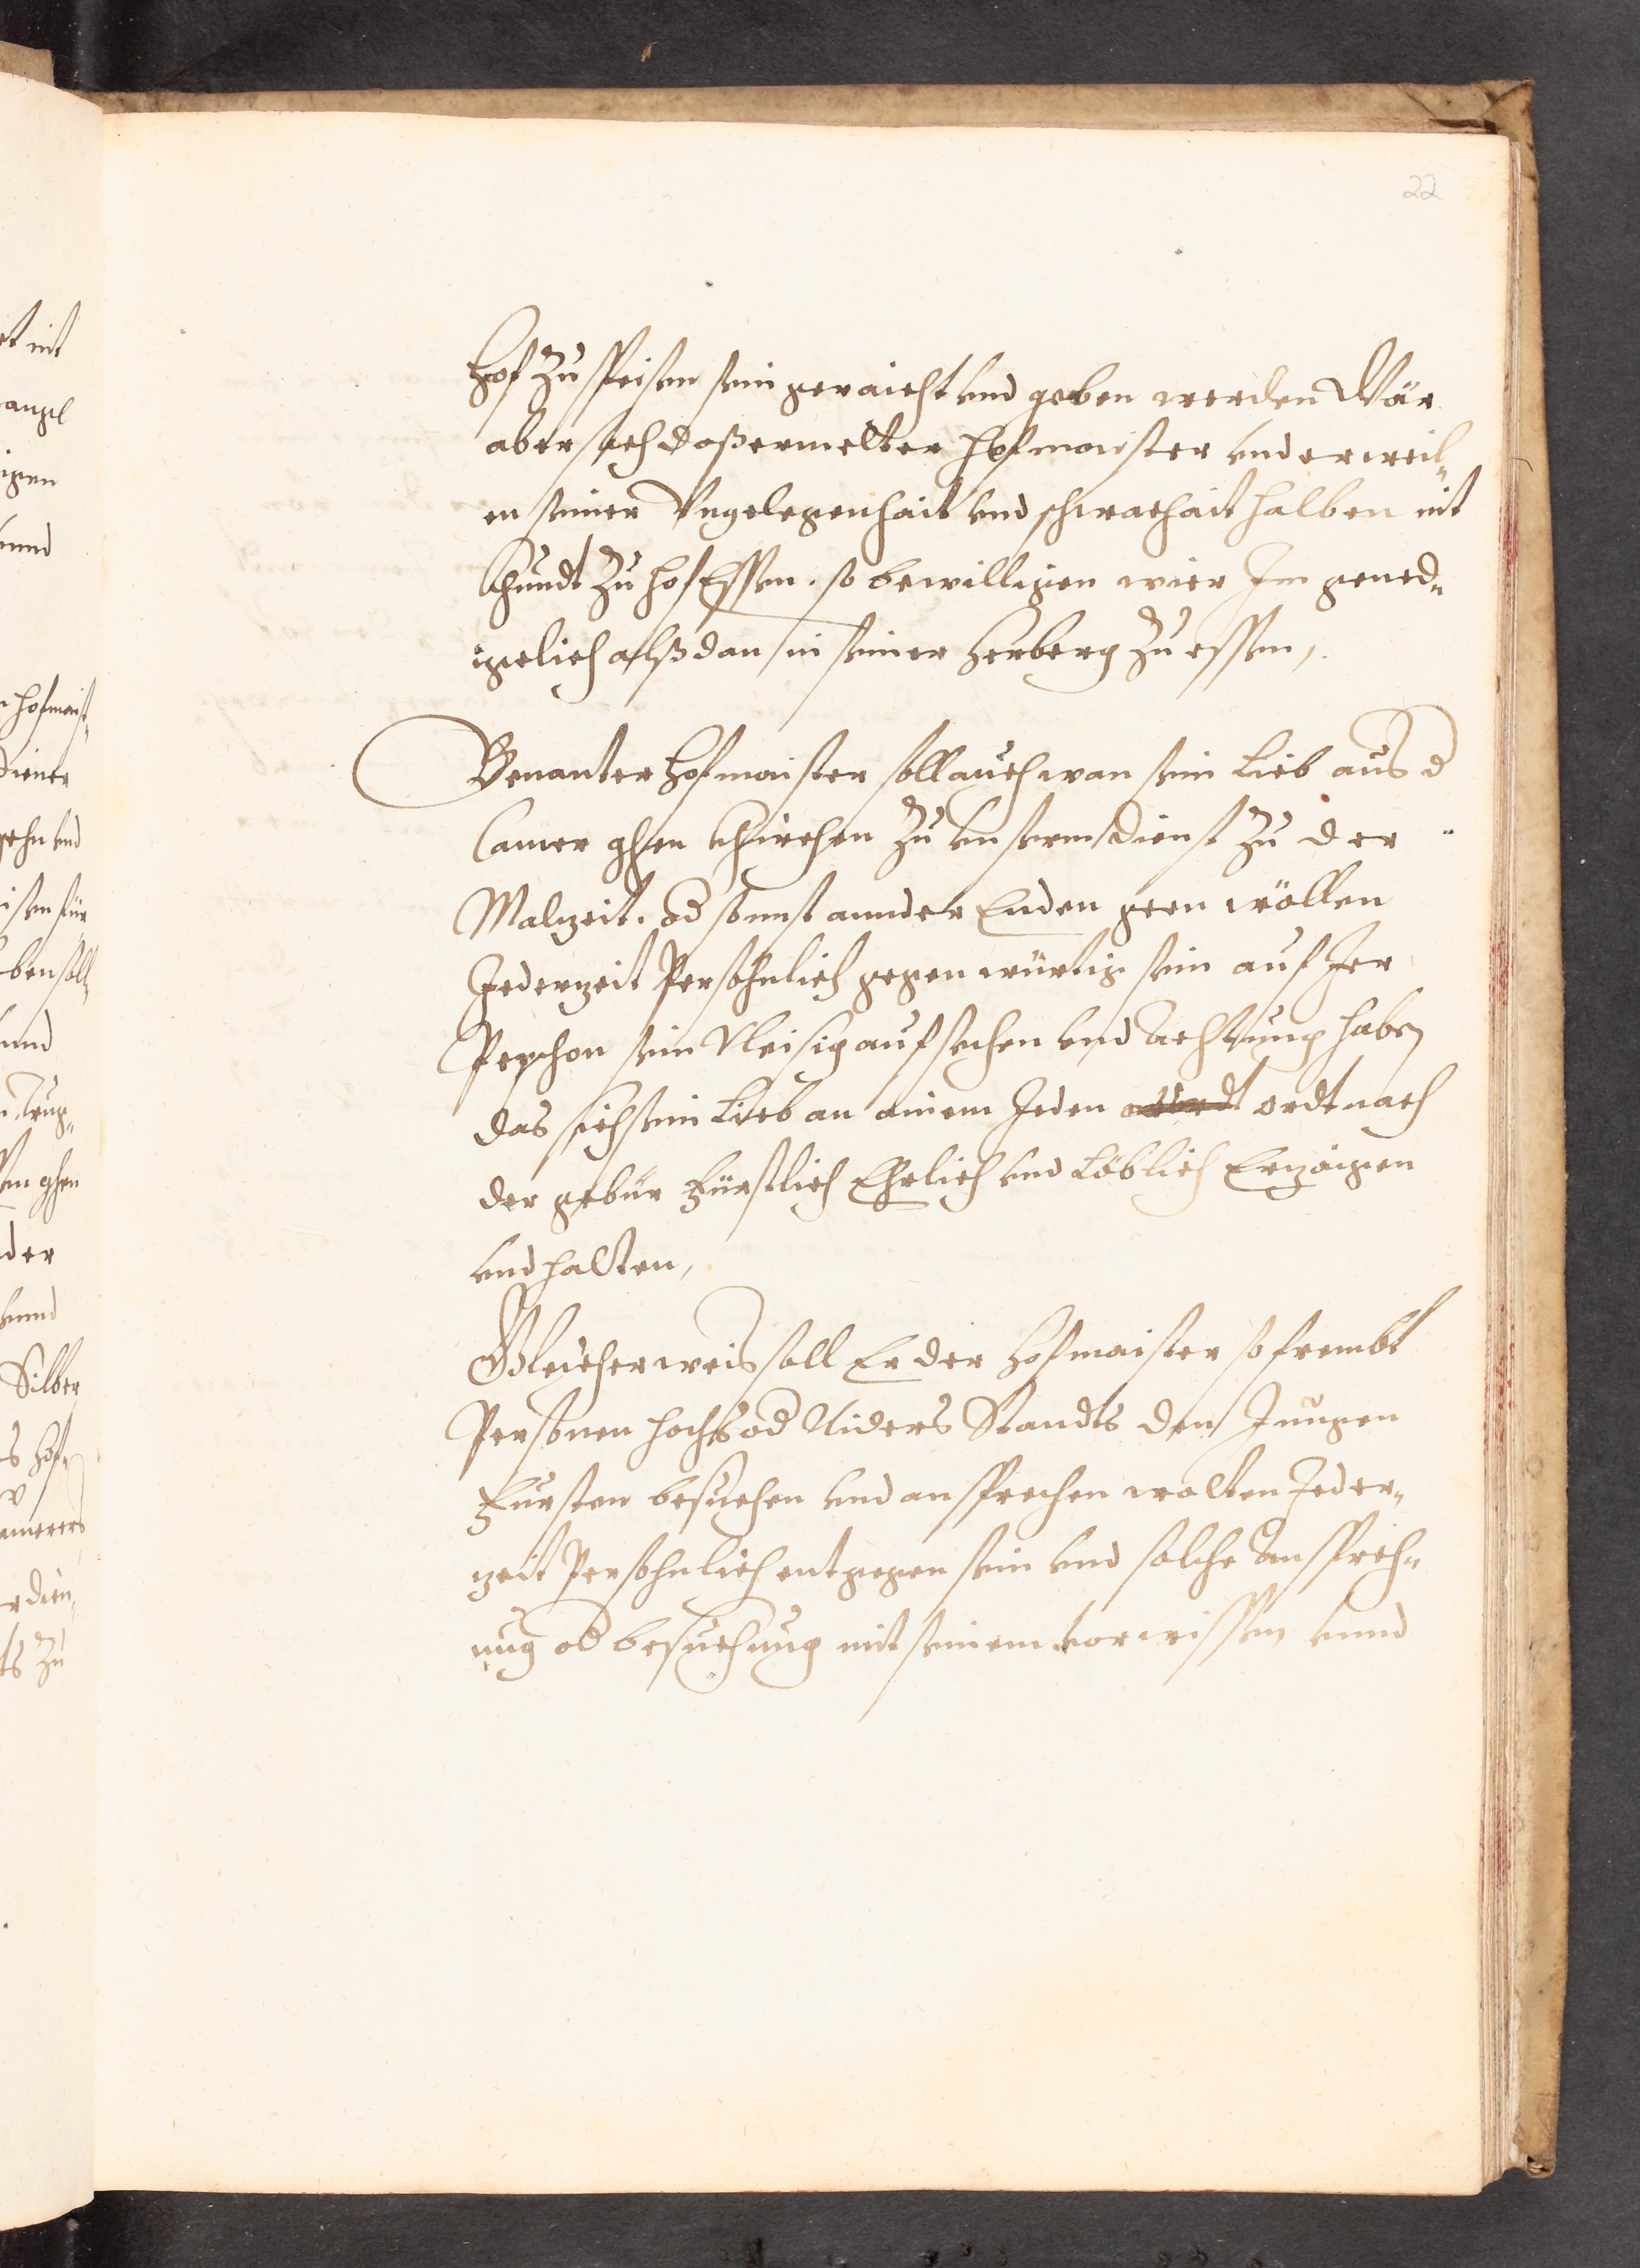 22
Hof zu speisen sein geraicht vnd geben werden Wär
aber sach das ermelter Hofmaister vnderweil„
en seiner Vngelegenhait vnd schwachait halben nit
khundt zu hof Essen. so bewilligen wier Im gened„
igelich alßdan in seiner Herberg zu essen,
Benanter Hofmaister soll auch wan sein Lieb aus d
Camer ghen khirchen zu vnserm dienst zu der
Malzeit. od sonnst annder Enden geen wöllen
Jederzeit Persöhnlich gegenwürtig sein auf Jer
Perschon sein Vleisig aufsechen vnd Achtung haben
das sich sein Lieb an ainem Jeden ordt nach
der gebür Fürstlich Ehrlich vnd Löblich Erzaigen
vnd halten,
Gleicherweis soll Er der Hofmaister so frembt
Personen hochs od Niders Standts den Jungen
Fursten besuechen vnd ansprechen wolten Jeder„
zeit Persohnlich entgegen sein vnd solche Ansprech„
ung od besuechung mit seinem vorwissen vnnd
et nit
angl
igen
vnnd
Hofmaist„
diener
sehn vnd
isen für
ben soll„
vnnd
ghen
der
vnnd
Silber
s Hof„
amerers
dien„
ts zu